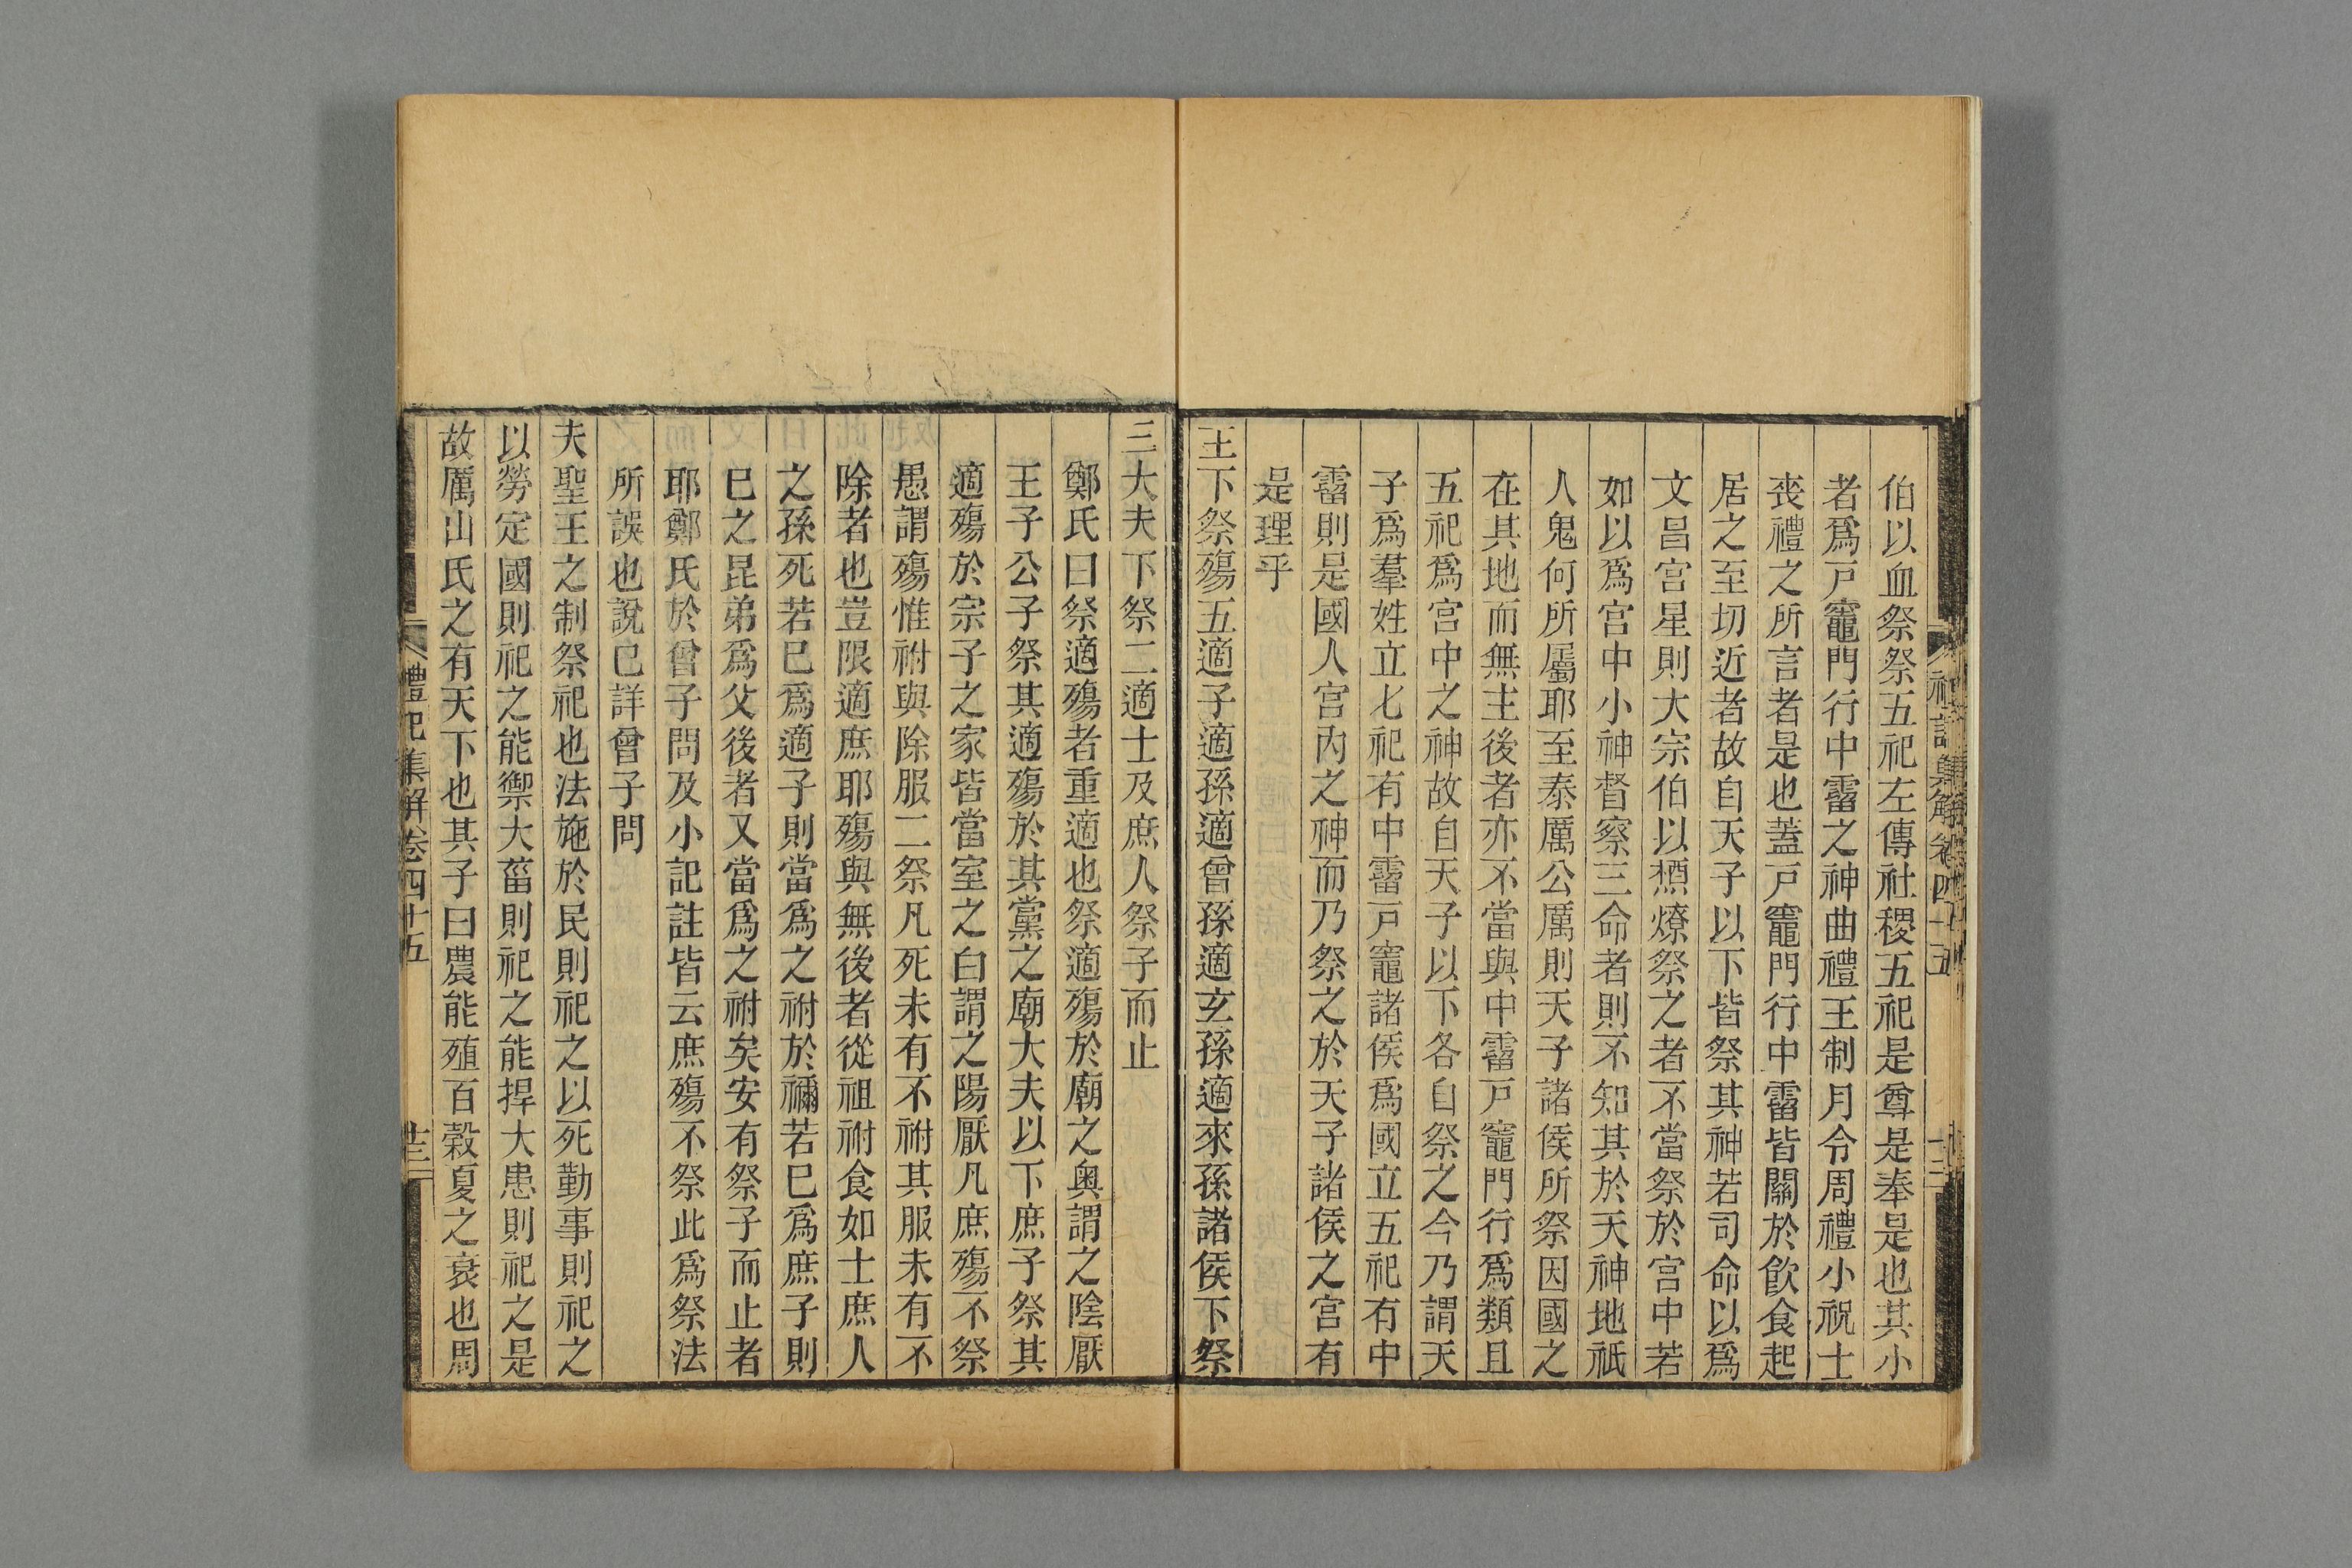 伯以血祭祭五祀左傳社稷五祀是尊是奉是也其小
者爲戸竈門行中霤之神曲禮王制月令周禮小祝士
喪禮之所言者是也蓋戸竈門行中霤皆關於飮食起
居之至切近者故自天子以下皆祭其神若司命以爲
文昌宮星則大宗伯以槱燎祭之者不當祭於宮中若
如以爲宮中小神督察三命者則不知其於天神地祇
人鬼何所屬耶至泰厲公厲則天子諸侯所祭因國之
在其地而無主後者亦不當與中霤戸竈門行爲類且
五祀爲宮中之神故自天子以下各自祭之今乃謂天
子爲羣姓立七祀有中霤戸竈諸侯爲國立五祀有中
霤則是國人宮內之神而乃祭之於天子諸侯之宮有
是理乎
王下祭殤五適子適孫適曾孫適玄孫適來孫諸侯下祭
三大夫下祭二適士及庶人祭子而止
鄭氏曰祭適殤者重適也祭適殤於廟之奧謂之陰厭
王子公子祭其適殤於其黨之廟大夫以下庶子祭其
適殤於宗子之家皆當室之白謂之陽厭凡庶殤不祭
愚謂殤惟祔與除服二祭凡死未有不祔其服未有不
除者也豈限適庶耶殤與無後者從祖祔食如士庶人
之孫死若巳爲適子則當爲之祔於禰若巳爲庶子則
巳之昆弟爲父後者又當爲之祔矣安有祭子而止者
耶鄭氏於曾子問及小記註皆云庶殤不祭此爲祭法
所誤也說已詳曾子問
夫聖王之制祭祀也法施於民則祀之以死勤事則祀之
以勞定國則祀之能禦大菑則祀之能捍大患則祀之是
故厲山氏之有天下也其子曰農能殖百穀夏之衰也周
禮記集解卷四十五